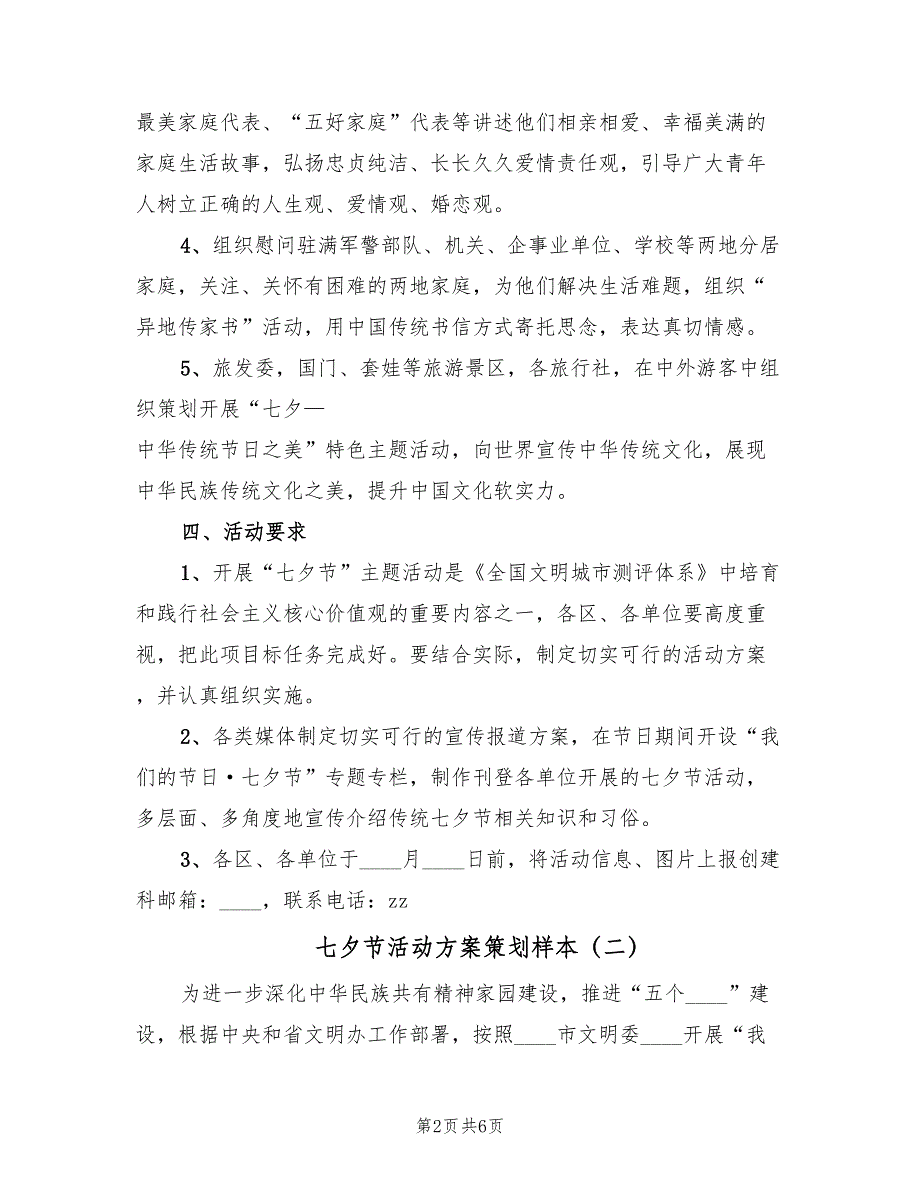 最美家庭代表、“五好家庭”代表等讲述他们相亲相爱、幸福美满的
家庭生活故事，弘扬忠贞纯洁、长长久久爱情责任观，引导广大青年
人树立正确的人生观、爱情观、婚恋观。
4、组织慰问驻满军警部队、机关、企事业单位、学校等两地分居
家庭，关注、关怀有困难的两地家庭，为他们解决生活难题，组织“
异地传家书”活动，用中国传统书信方式寄托思念，表达真切情感。
5、旅发委，国门、套娃等旅游景区，各旅行社，在中外游客中组
织策划开展“七夕—
中华传统节日之美”特色主题活动，向世界宣传中华传统文化，展现
中华民族传统文化之美，提升中国文化软实力。
四、活动要求
1、开展“七夕节”主题活动是《全国文明城市测评体系》中培育
和践行社会主义核心价值观的重要内容之一，各区、各单位要高度重
视，把此项目标任务完成好。要结合实际，制定切实可行的活动方案
，并认真组织实施。
2、各类媒体制定切实可行的宣传报道方案，在节日期间开设“我
们的节日·七夕节”专题专栏，制作刊登各单位开展的七夕节活动，
多层面、多角度地宣传介绍传统七夕节相关知识和习俗。
3、各区、各单位于____月____日前，将活动信息、图片上报创建
科邮箱：____，联系电话：zz
七夕节活动方案策划样本（二）
为进一步深化中华民族共有精神家园建设，推进“五个____”建
设，根据中央和省文明办工作部署，按照____市文明委____开展“我
第2页共6页